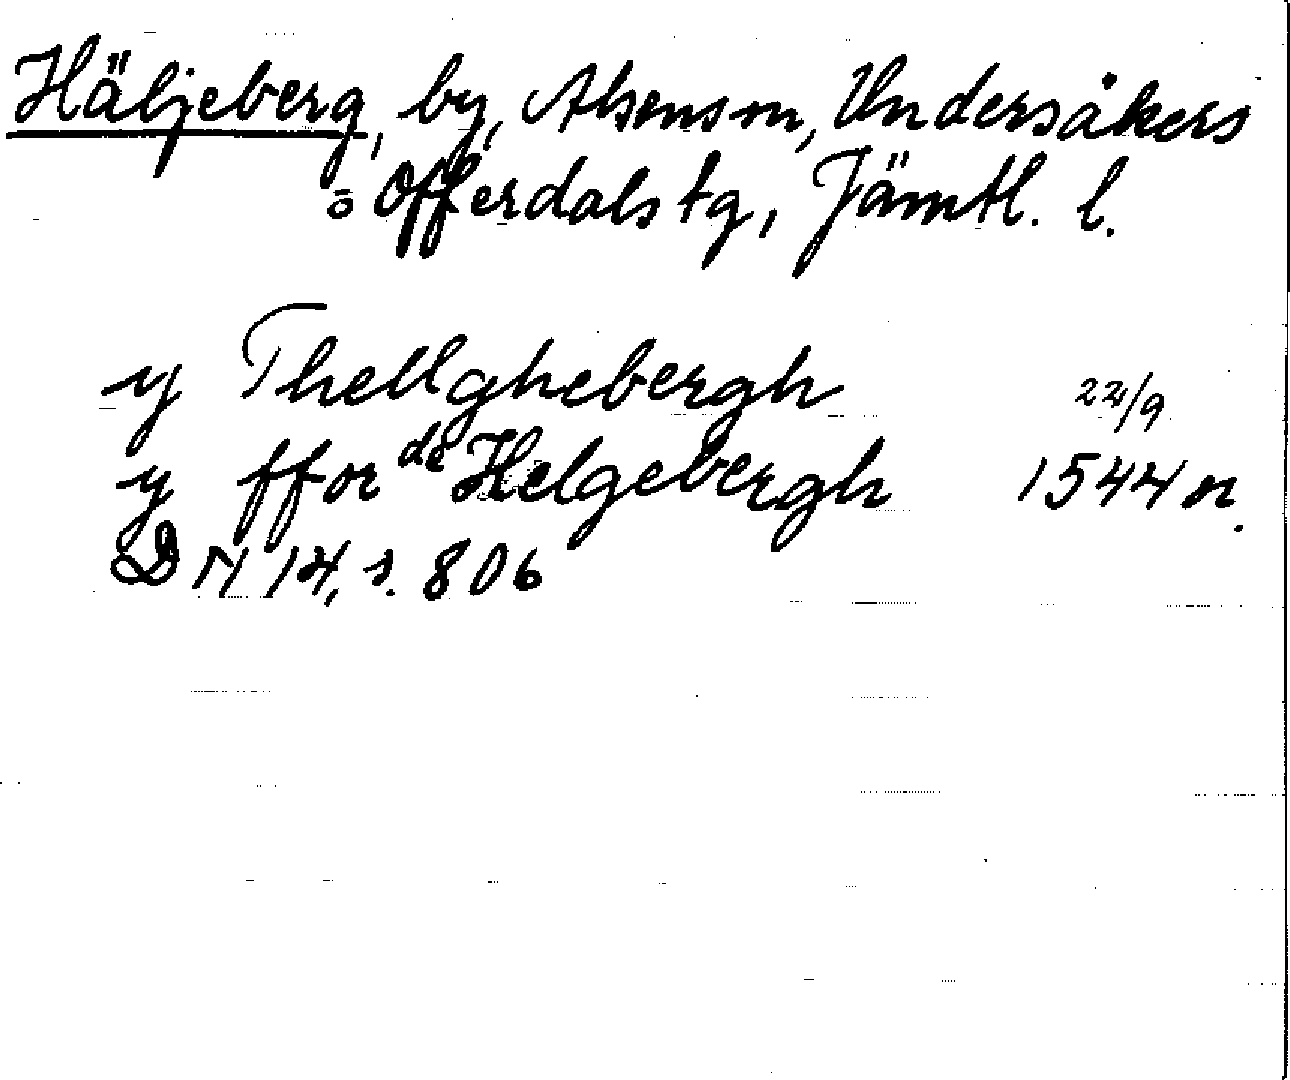 Häljeberg, by, Alsens sn, Undersåkers
o Offerdals tg, Jämtl. l.
y Thellghebergh 22/9
y fforde Helgebergh 1544 or.
DN 14, s. 806